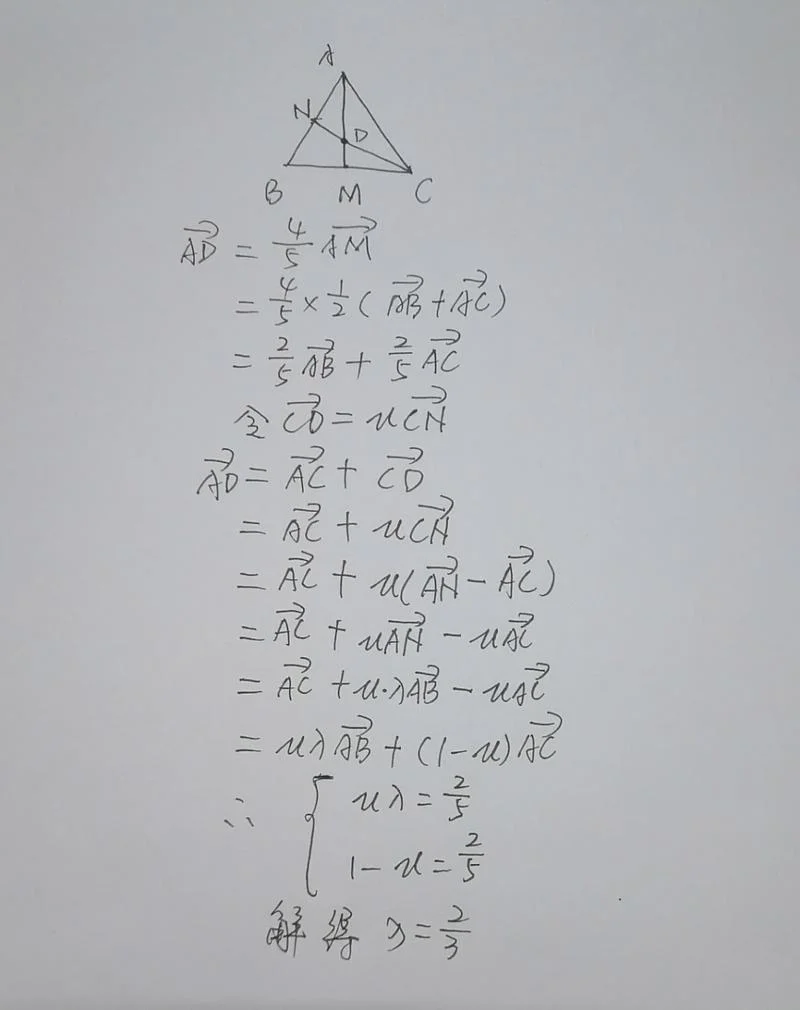 A
N
D
B M C
\overrightarrow{AD} = \frac{4}{5} \overrightarrow{AM}
= \frac{4}{5} × \frac{1}{2} ( \overrightarrow{AB} + \overrightarrow{AC} )
= \frac{2}{5} \overrightarrow{AB} + \frac{2}{5} \overrightarrow{AC}
令 \overrightarrow{CD} = u \overrightarrow{CN}
\overrightarrow{AD} = \overrightarrow{AC} + \overrightarrow{CD}
= \overrightarrow{AC} + u \overrightarrow{CN}
= \overrightarrow{AC} + u( \overrightarrow{AN} - \overrightarrow{AC} )
= \overrightarrow{AC} + u \overrightarrow{AN} - u \overrightarrow{AC}
= \overrightarrow{AC} + u·λ \overrightarrow{AB} - u \overrightarrow{AC}
= uλ \overrightarrow{AB} + (1-u) \overrightarrow{AC}
∴ { uλ = \frac{2}{5}
1-u = \frac{2}{5}
解得 λ = \frac{2}{3}